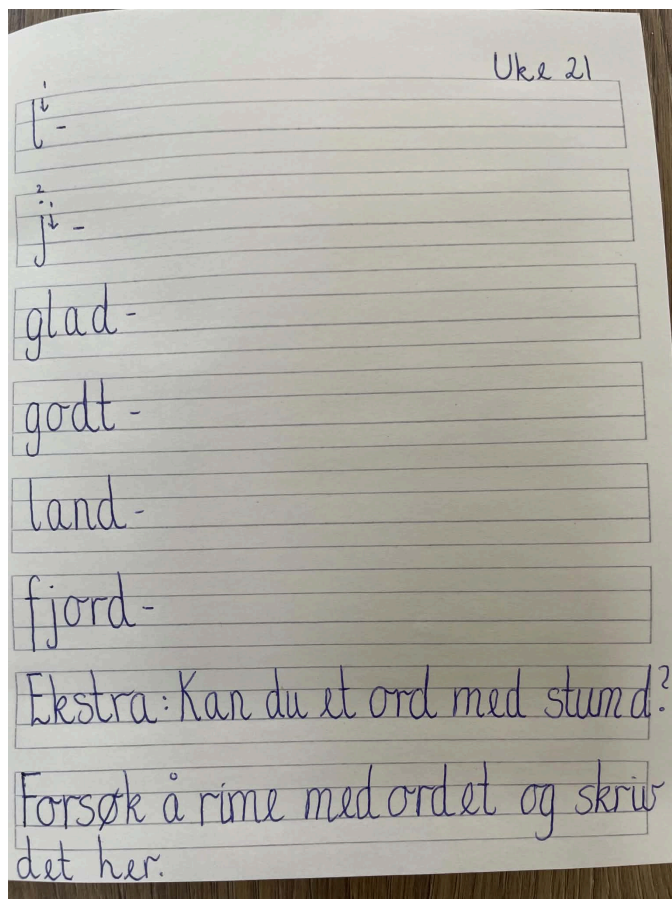 Uke 21
1
l -
2
1
j -
glad -
godt -
land -
fjord -
Ekstra: Kan du et ord med stum d?
Forsøk å rime med ordet og skriv
det her.